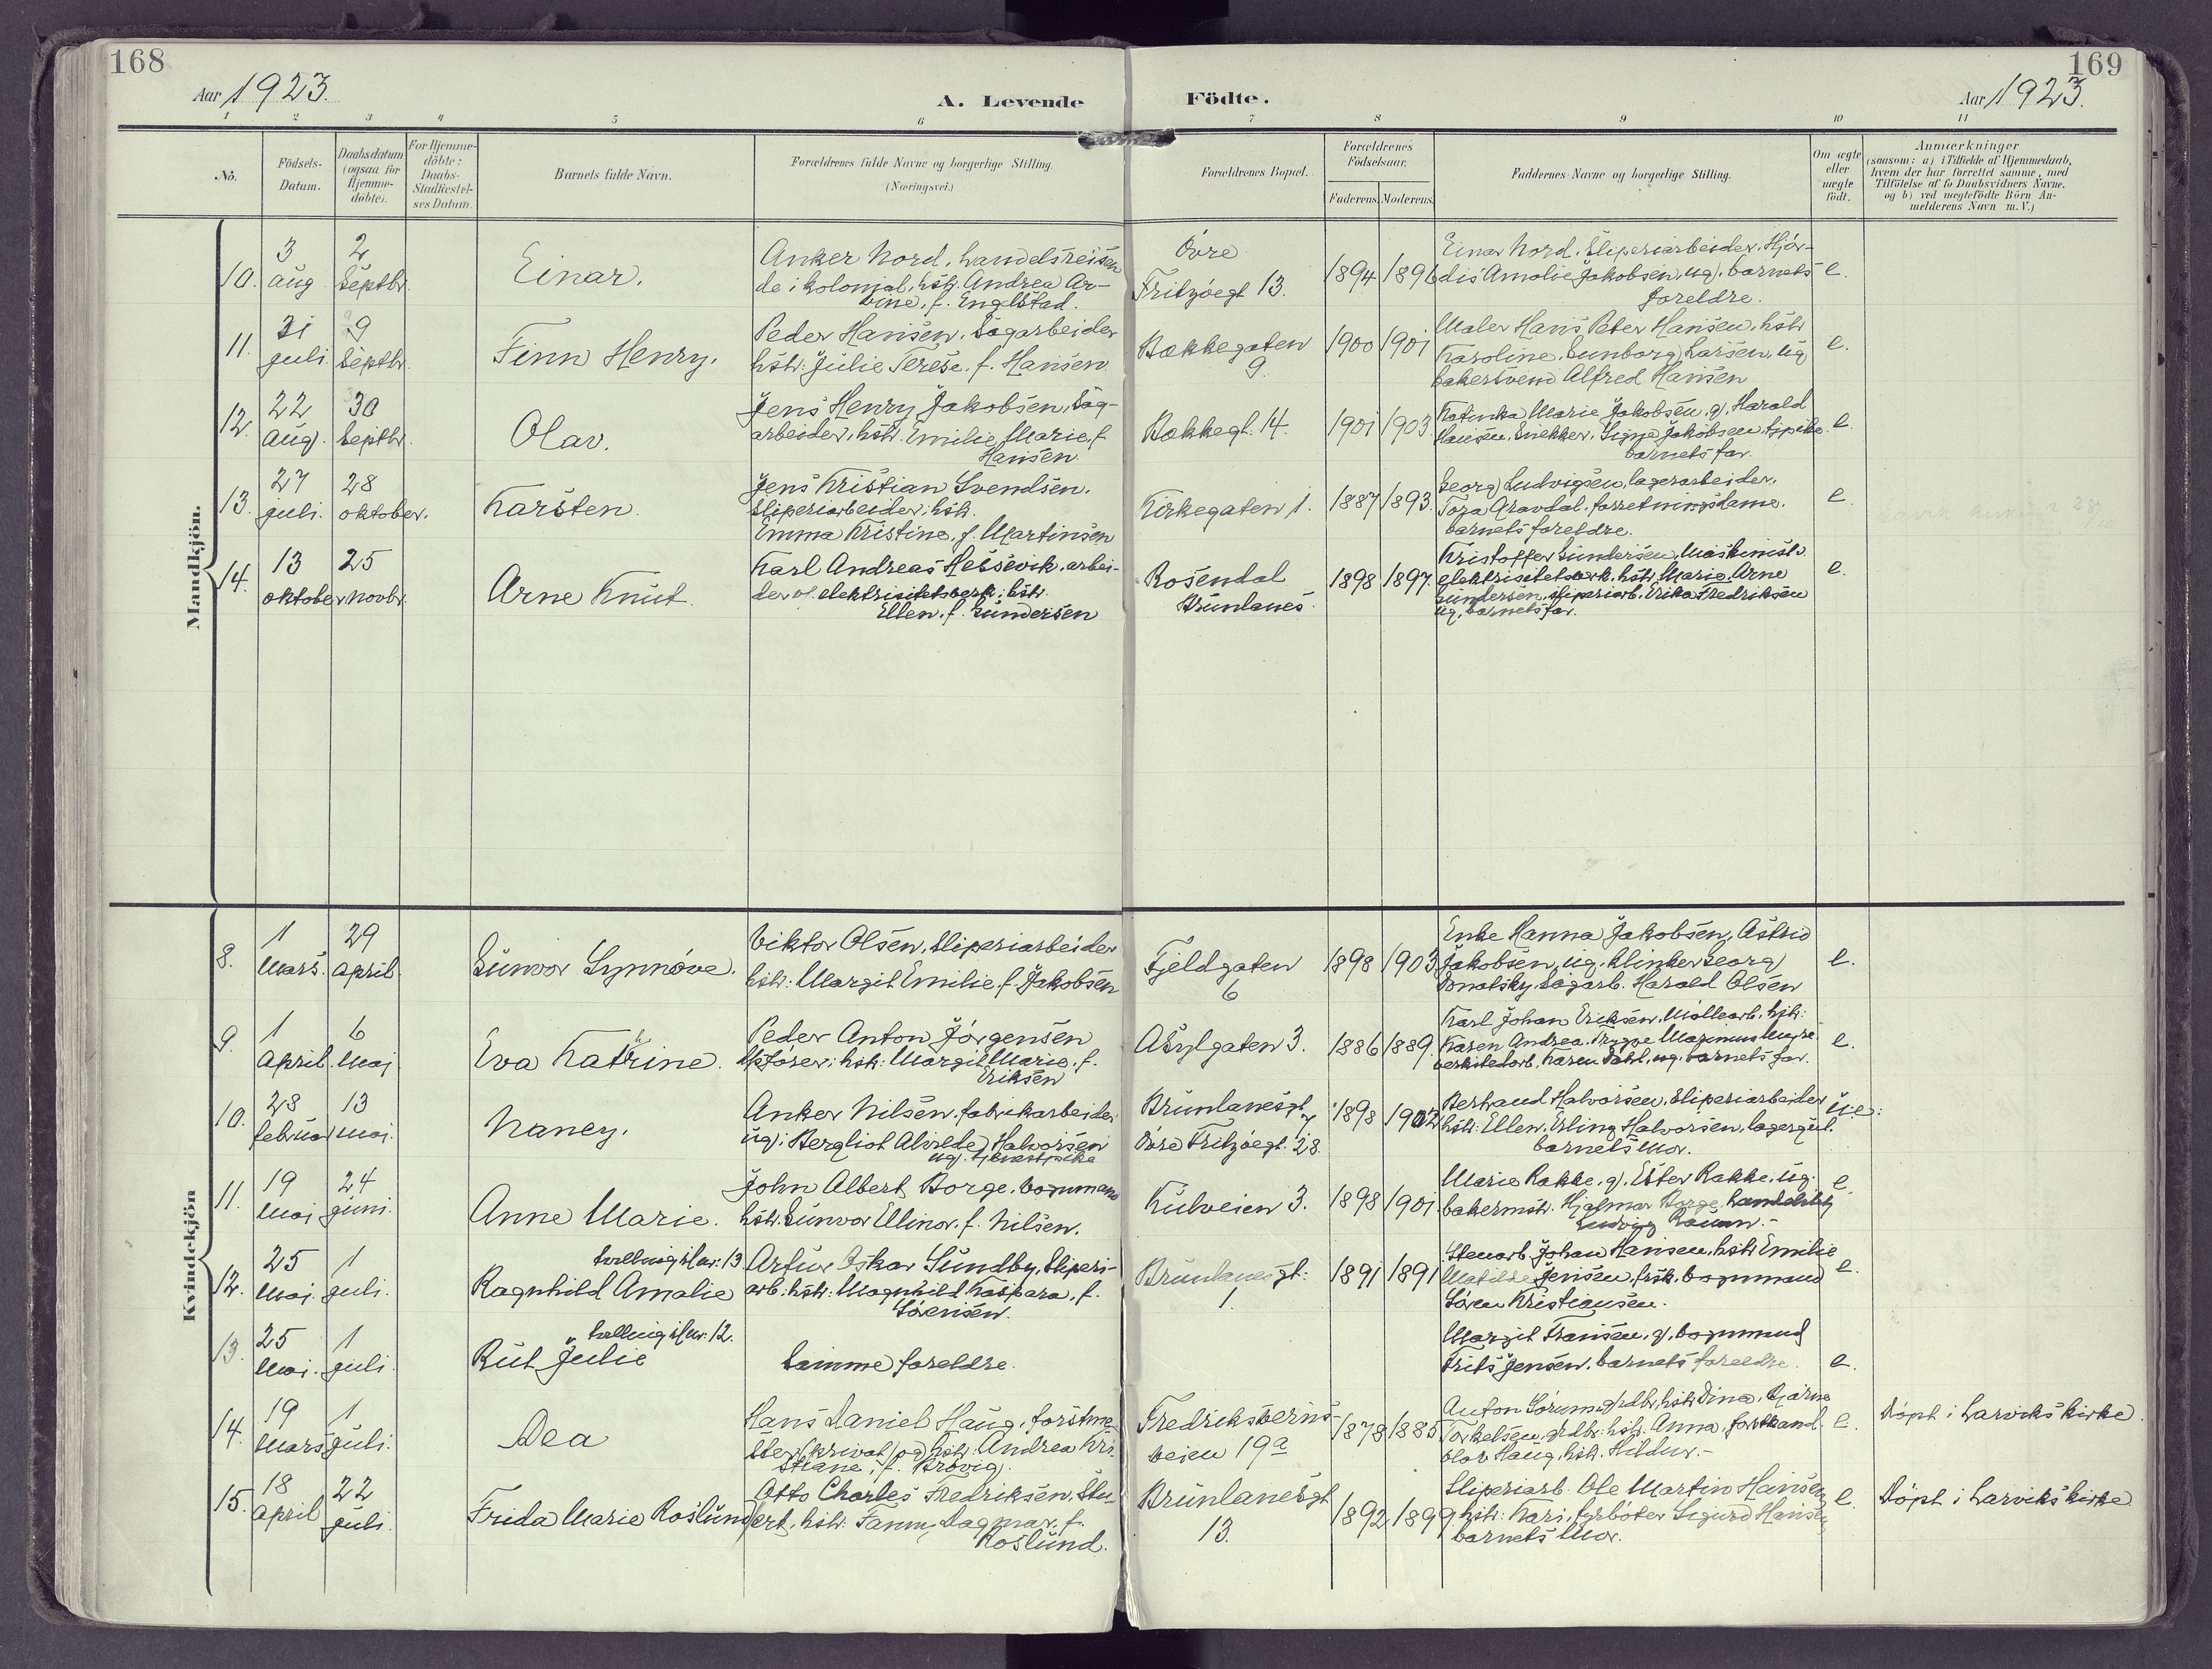 168
169
Aar 1923.
A. Levende Födte.
Aar 1923.
1 2 3 4 5 6 7 8 9 10 11
No.
Födsels-
Datum.
Daabsdatum
(ogsaa for
Hjemme-
döbte).
For Hjemme-
döbte:
Daabs-
Stadfæstel-
ses Datum.
Barnets fulde Navn.
Forældrenes fulde Navne og borgerlige Stilling.
(Næringsvei.)
Forældrenes Bopæl.
Forældrenes
Födselsaar.
Faderens. Moderens.
Faddernes Navne og borgerlige Stilling.
Om ægte
eller
uægte
födt.
Anmærkninger
(saasom: a) i Tilfælde af Hjemmedaab,
hvem der har forrettet samme, med
Tilföielse af to Daabsvidners Navne.
og b) ved uægtefödte Börn An-
melderens Navn m. V.)
Mandkjön.
10. 3 aug. 2 Septbr.
Einar.
Anker Nord, handelsreisen
de i kolonial, hstr. Andrea Ar-
vine, f. Engelstad.
Övre
Fritzöegt 13.
1894 1896
Einar Nord, Sliperiarbeider, Hjör-
dis Amalie Jakobsen, ug, barnets
foreldre.
e.
11. 31 juli. 9 Septbr.
Finn Henry.
Peder Hansen, Sagarbeider
hstr: Julie Terese, f. Hansen
Bækkegaten
9.
1900 1901
Maler Hans Peter Hansen, hstr
Karoline, Sunborg Larsen, ug
bakersvend Alfred Hansen
e.
12. 22 aug. 30 Septbr.
Olav.
Jens Henry Jakobsen, Sag-
arbeider, hstr. Emilie Marie, f.
Hansen.
Bækkegt. 14.
1901 1903.
Katinka Marie Jakobsen, g, Harald
Hansen, Snekker, Signe Jakobsen,
barnets far.
e.
13. 27 juli. 28 oktober.
Karsten.
Jens Kristian Svendsen.
Sliperiarbeider, hstr.
Emma Kristine, f. Martinsen
Kirkegaten 1.
1887 1893.
Georg Ludvigsen, lagerarbeider.
Tora Aravdal, forretningsdame.
barnets foreldre.
e.
14. 13 oktober 25 Novbr.
Arne Knut.
Karl Andreas Hessevik, arbei-
der v. elektrisitetsverk; hstr.
Ellen, f. Gundersen
Rosendal
Brunlanes.
1898 1897.
Kristoffer Gundersen, Maskinist v.
elektrisitetsverk, hstr, Marie, Arne
Gundersen, sliperiarb, Erika Fredriksen
ug, barnets far.
e.
Kvindekjön
8. 1 Mars. 29 April
Gunvor Synnöve.
Viktor Olsen, Sliperiarbeider
hstr: Margit Emilie, f. Jakobsen
Fjeldgaten
6
1898 1903
Enke Hanna Jakobsen, Astrid
Jakobsen, ug, klinker Georg
Donalsky, Sagarb. Harald Olsen
e.
9. 1 April. 6 Mai
Eva Katrine.
Peder Anton Jörgensen
hstr: Margit Marie, f.
Eriksen
Asylgaten 3.
1886 1889.
Karl Johan Eriksen, Möllearb. hstr:
Karen Andrea, Trygve Marinius Myre
verkstedarb, Karen Dahl, ug. barnets far.
e.
10. 28 februar 13 mai.
Nancy.
Anker Nilsen, fabrikarbeider
ug; Bergliot Alvilde Halvorsen
ug. tjenestpike
Brunlanesgt
7
Övre Fritzöegt. 28.
1898 1902
Bernhand Halvorsen, Sliperiarbeider
hstr: Ellen, Erling Halvorsen, lagergut.
barnets Mor.
ue:
11. 19 Mai 24 juni.
Anne Marie.
John Albert Borge, vognmann
hstr. Gunvor Ellinor, f. Nilsen.
Kulveien 3.
1898 1901.
Marie Rakke, g, Ester Rakke, ug.
bakermstr. Hjalmar Borge,
Ludvig
e.
12. 25 Mai. 1 juli.
tvilling til nr: 13
Ragnhild Amalie
Artur Oskar Sundby, Sliperi-
arb: hstr: Magnhild Kaspara, f.
Sörensen.
Brunlanesgt:
1.
1891 1891
Stenarb Johan Hansen, hstr Emilie
Matilde Jensen, frsk, vognmand
Sören Kristiansen.
e.
13. 25 Mai. 1 juli.
tvilling til nr: 12.
Rut Julie
Samme foreldre.
Margit Fransen, g, vognmand
Frits Jensen, barnets foreldre.
e.
14. 19 Mars 1 juli.
Dea
Hans Daniel Haug, forstme-
ster (privat) og hstr: Andrea Kri-
stiane, f. Brövig.
Fredriksværns-
veien 19a
1878 1885
Anton Sörum, grdbr, hstr Dina, Bjarne
Torkelsen, grdbr: hstr. Anna, forstkand.
Olav Haug, hstr. Hildur.-
e.
Döpt i Larviks kirke.
15. 18 April 22 juli.
Frida Marie Roslund
Otto Charles Fredriksen, Stu-
ert, hstr: Fanny Dagmar, f.
Roslund.
Brunlanesgt
13.
1892 1899
Sliperiarb. Ole Martin Hansen
hstr: Kari, fyrböter Sigurd Hansen
barnets Mor.
e.
Döpt i Larviks kirke